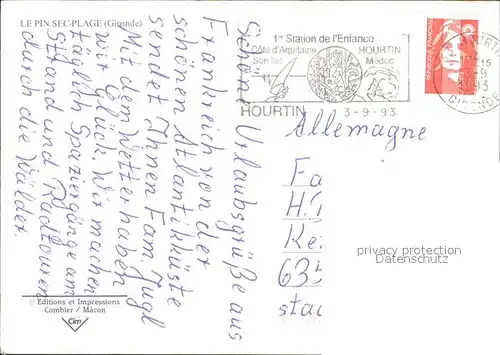 LE PIN SEC-PLAGE (Gironde)
Schöne Urlaubsgrüße aus
Frankreich von der
schönen Atlantikküste
sendet Ihnen Fam. Jugl
Mit dem Wetter haben
wir Glück. Wir machen
täglich Spaziergänge am
Strand und Radtouren
durch die Wälder.
Editions et Impressions
Combier / Mâcon
Cim
1re Station de l'Enfance
Côte d'Aquitaine HOURTIN
Son lac Médoc
HOURTIN 3-9-93
REPUBLIQUE FRANÇAISE
GIRONDE
Allemagne
Fa
H.
635
privacy protection
Datenschutz